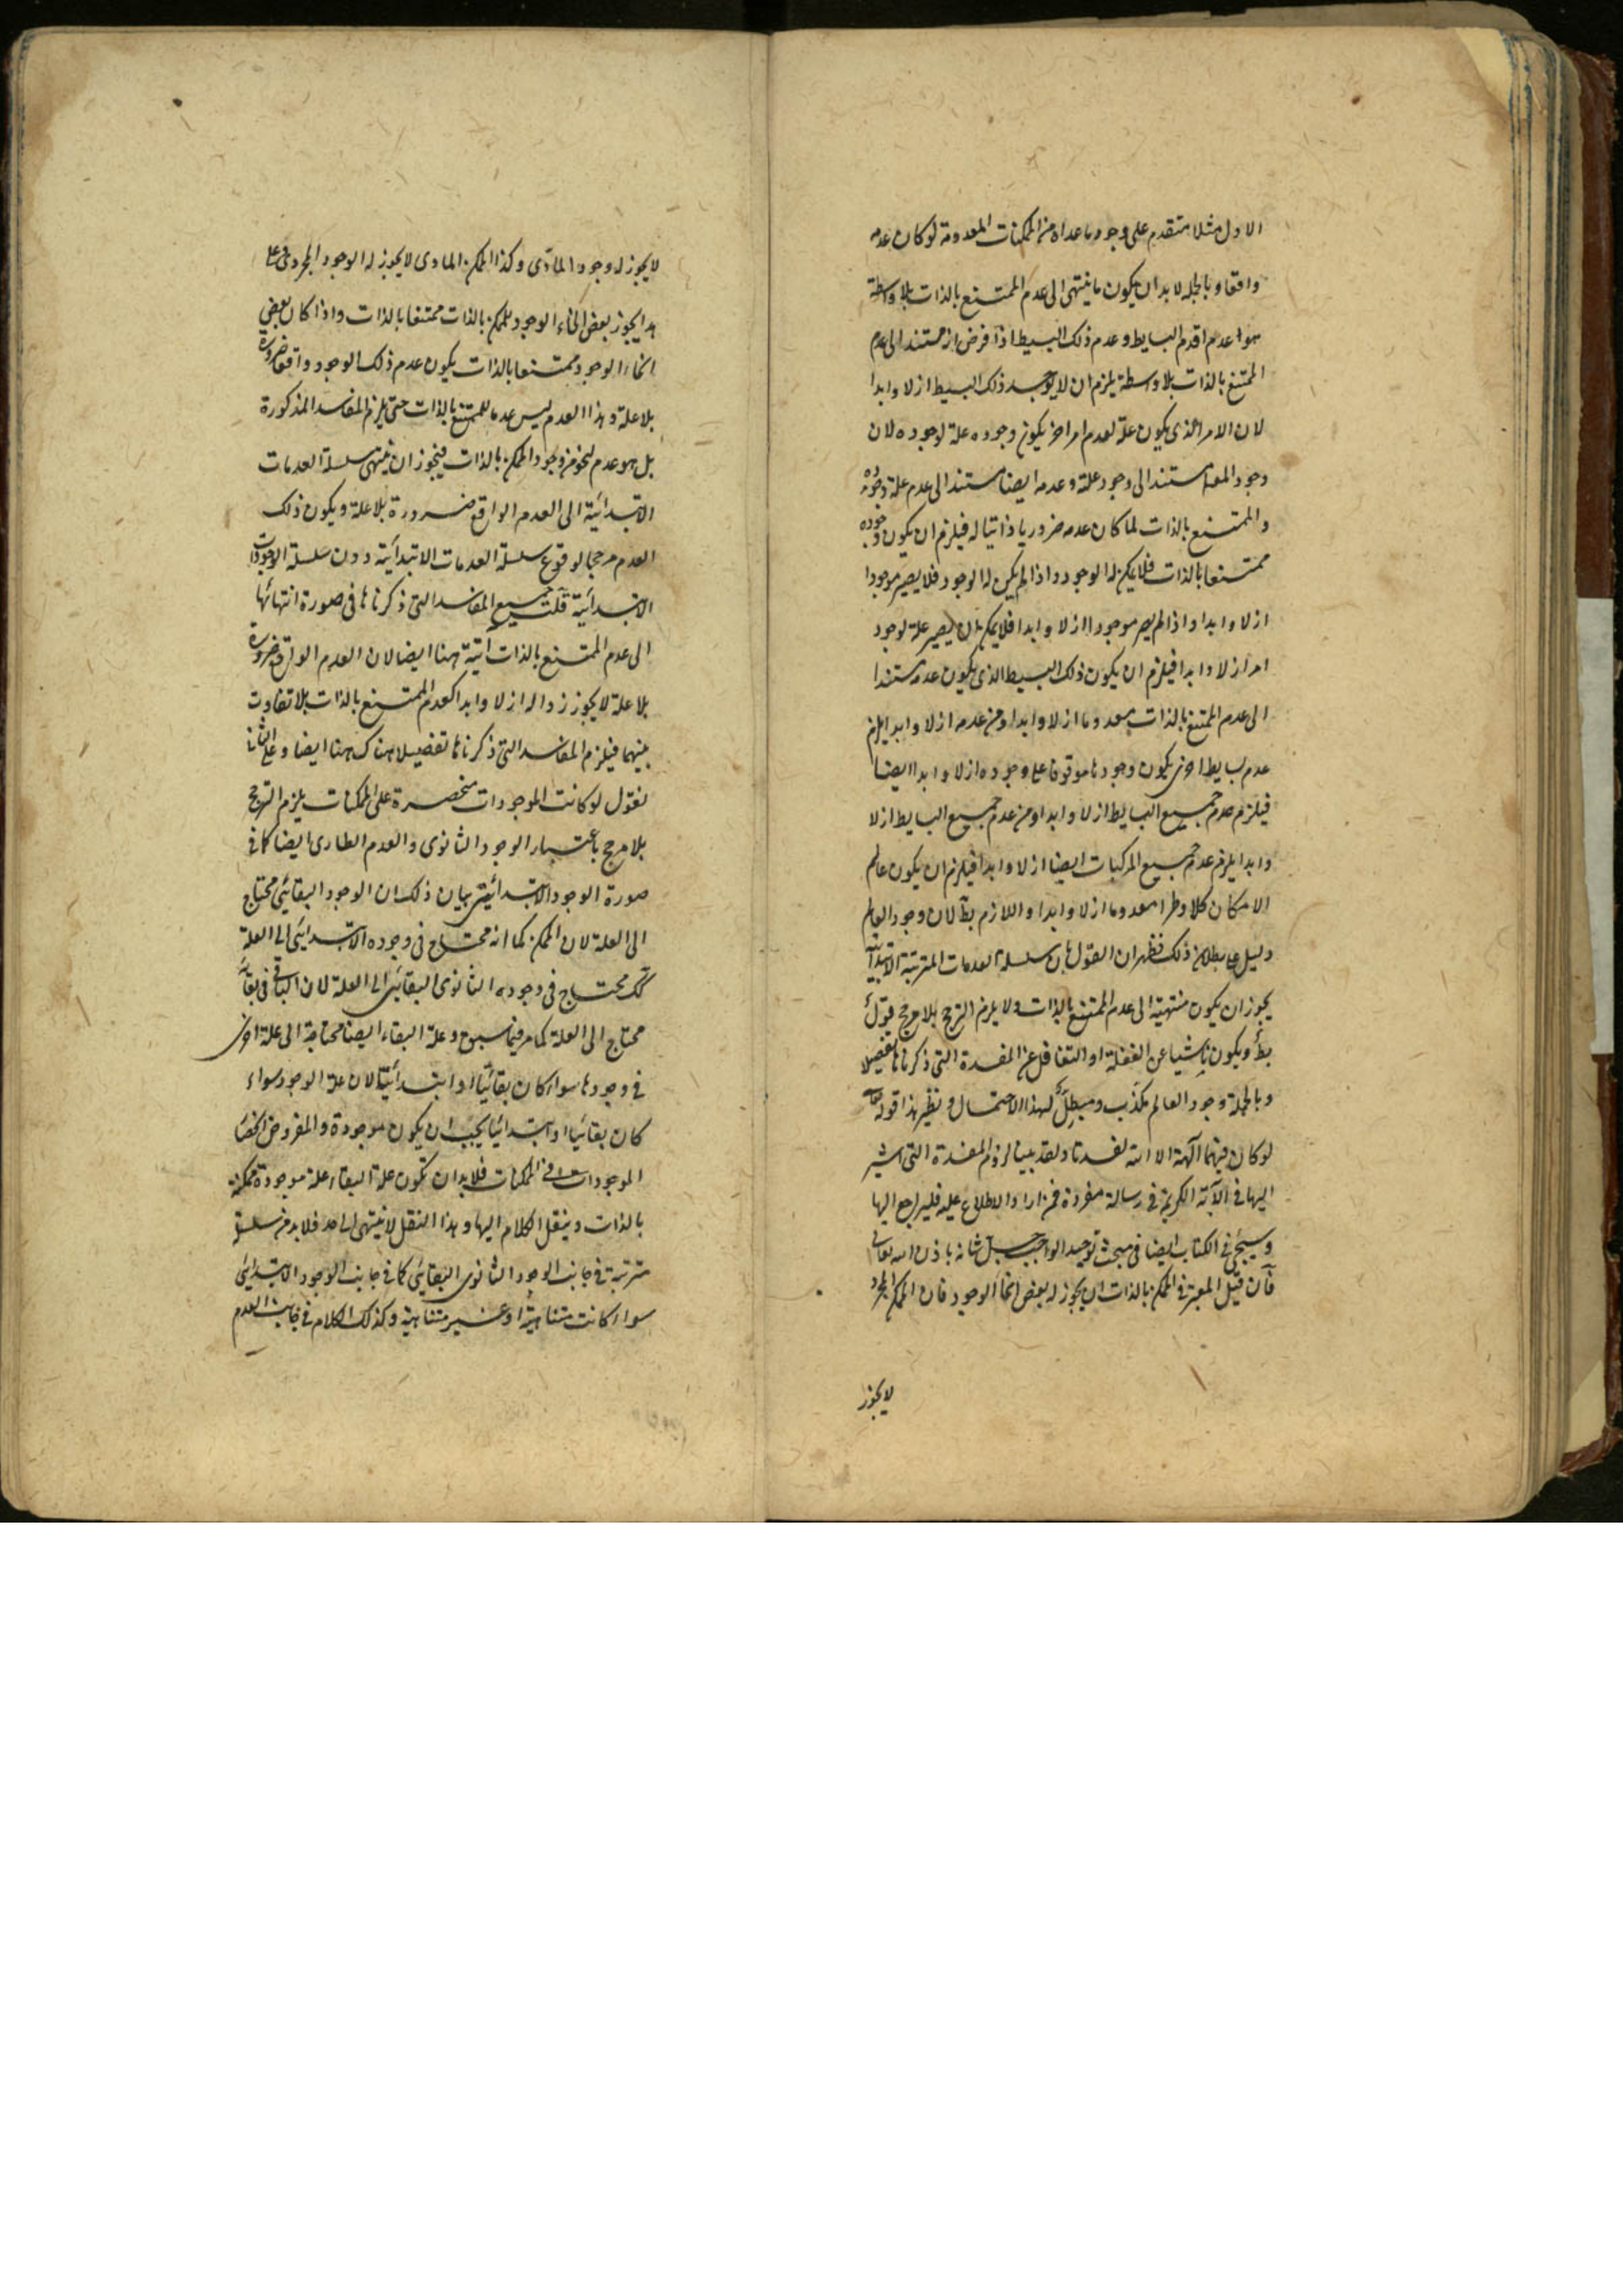 الاول مثلا متقدم على وجود ما عداه من الممكنات المعدومة لو كان عدمه
واقعا وبالجملة لا بد ان يكون ما ينتهى الى عدم الممتنع بالذات بلا واسطة
هو اعدم اقدم البسايط وعدم ذلك البسيط اذا فرض انه مستند الى عدم
الممتنع بالذات بلا وسطة يلزم ان لا يوجد ذلك البسيط ازلا وابدا
لان الامر الذى يكون علة لعدم امر اخر يكون وجوده علة لوجوده لان
وجود المعلول مستند الى وجود علته وعدمه ايضا مستند الى عدم علة وجوده
والممتنع بالذات لما كان عدمه ضروريا ذاتيا له فيلزم ان يكون وجوده
ممتنعا بالذات فلا يمكن له الوجود واذا لم يكن له الوجود فلا يصير موجودا
ازلا وابدا واذا لم يصر موجودا ازلا وابدا فلا يمكن ان يصير علة لوجود
امر ازلا وابدا فيلزم ان يكون ذلك البسيط الذى يكون عدمه مستندا
الى عدم الممتنع بالذات معدوما ازلا وابدا ومن عدمه ازلا وابدا يلزم
عدم بسايط اخرى يكون وجودها موقوفا على وجوده ازلا وابدا ايضا
فيلزم عدم جميع البسايط ازلا وابدا ومن عدم جميع البسايط ازلا
وابدا يلزم عدم جميع المركبات ايضا ازلا وابدا فيلزم ان يكون عالم
الامكان كلا وطرا معدوما ازلا وابدا واللازم بط لان وجود العالم
دليل على بطلان ذلك فظهر ان القول بان سلسلة العدمات المترتبة الابتدائية
يجوز ان يكون منتهية الى عدم الممتنع بالذات ولا يلزم الترجح بلا مرجح قول
بط ويكون ناشيا عن الغفلة او التغافل عن المفسدة التى ذكرناها تفصيلا
وبالجملة وجود العالم مكذب ومبطل لهذا الاحتمال ونظير هذا قوله تعالى
لو كان فيهما آلهة الا الله لفسدتا ولقد بينا لزوم المفسدة التى اشير
اليها فى الآية الكريمة فى رسالة مفردة فمن اراد الاطلاع عليه فليراجع اليها
وسيجئ فى الكتاب ايضا فى مبحث توحيد الواجب جل شانه باذن الله تعالى
فان قيل المعتبر فى الممكن بالذات ان يجوز له بعض انحاء الوجود فان الممكن المجرد
لا يجوز
لا يجوز له وجود المادى وكذا الممكن المادى لا يجوز له الوجود المجردى فعلى
هذا يجوز بعض انحاء الوجود للممكن بالذات ممتنعا بالذات واذا كان بعض
انحاء الوجود ممتنعا بالذات يكون عدم ذلك الوجود واقعا ضرورة
بلا علة وهذا العدم ليس عدما للممتنع بالذات حتى يلزم المفاسد المذكورة
بل هو عدم لنحو من وجود الممكن بالذات فيجوز ان ينتهى سلسلة العدمات
الابتدائية الى العدم الواقع ضرورة بلا علة ويكون ذلك
العدم مرجحا لوقوع سلسلة العدمات الابتدائية دون سلسلة الوجودات
الابتدائية قلت جميع المفاسد التى ذكرناها فى صورة انتهائها
الى عدم الممتنع بالذات آتية ههنا ايضا لان العدم الواقع ضرورة
بلا علة لا يجوز زواله ازلا وابدا كعدم الممتنع بالذات بلا تفاوت
بينهما فيلزم المفاسد التى ذكرناها تفصيلا هناك ههنا ايضا وعلى الثانى
نقول لو كانت الموجودات منحصرة على الممكنات يلزم الترجح
بلا مرجح باعتبار الوجود الثانوى والعدم الطارى ايضا كما فى
صورة الوجود الابتدائى بيان ذلك ان الوجود البقائى محتاج
الى العلة لان الممكن كما انه محتاج فى وجوده الابتدائى الى العلة
كك محتاج فى وجوده الثانوى البقائى الى العلة لان الباقى فى بقائه
محتاج الى العلة كما مر فيما سبق وعلة البقاء ايضا محتاجة الى علة اخرى
فى وجودها سواء كان بقائيا او ابتدائيا لان علة الوجود سواء
كان بقائيا او ابتدائيا يجب ان يكون موجودة والمفروض انحصار
الموجودات فى الممكنات فلا بد ان تكون علة البقاء علة موجودة ممكنة
بالذات وينقل الكلام اليها وهذا النقل لا ينتهى الى حد فلا بد من سلسلة
مترتبة فى جانب الوجود الثانوى البقائى كما فى جانب الوجود الابتدائى
سواء كانت متناهية او غير متناهية وكذلك الكلام فى جانب العدم